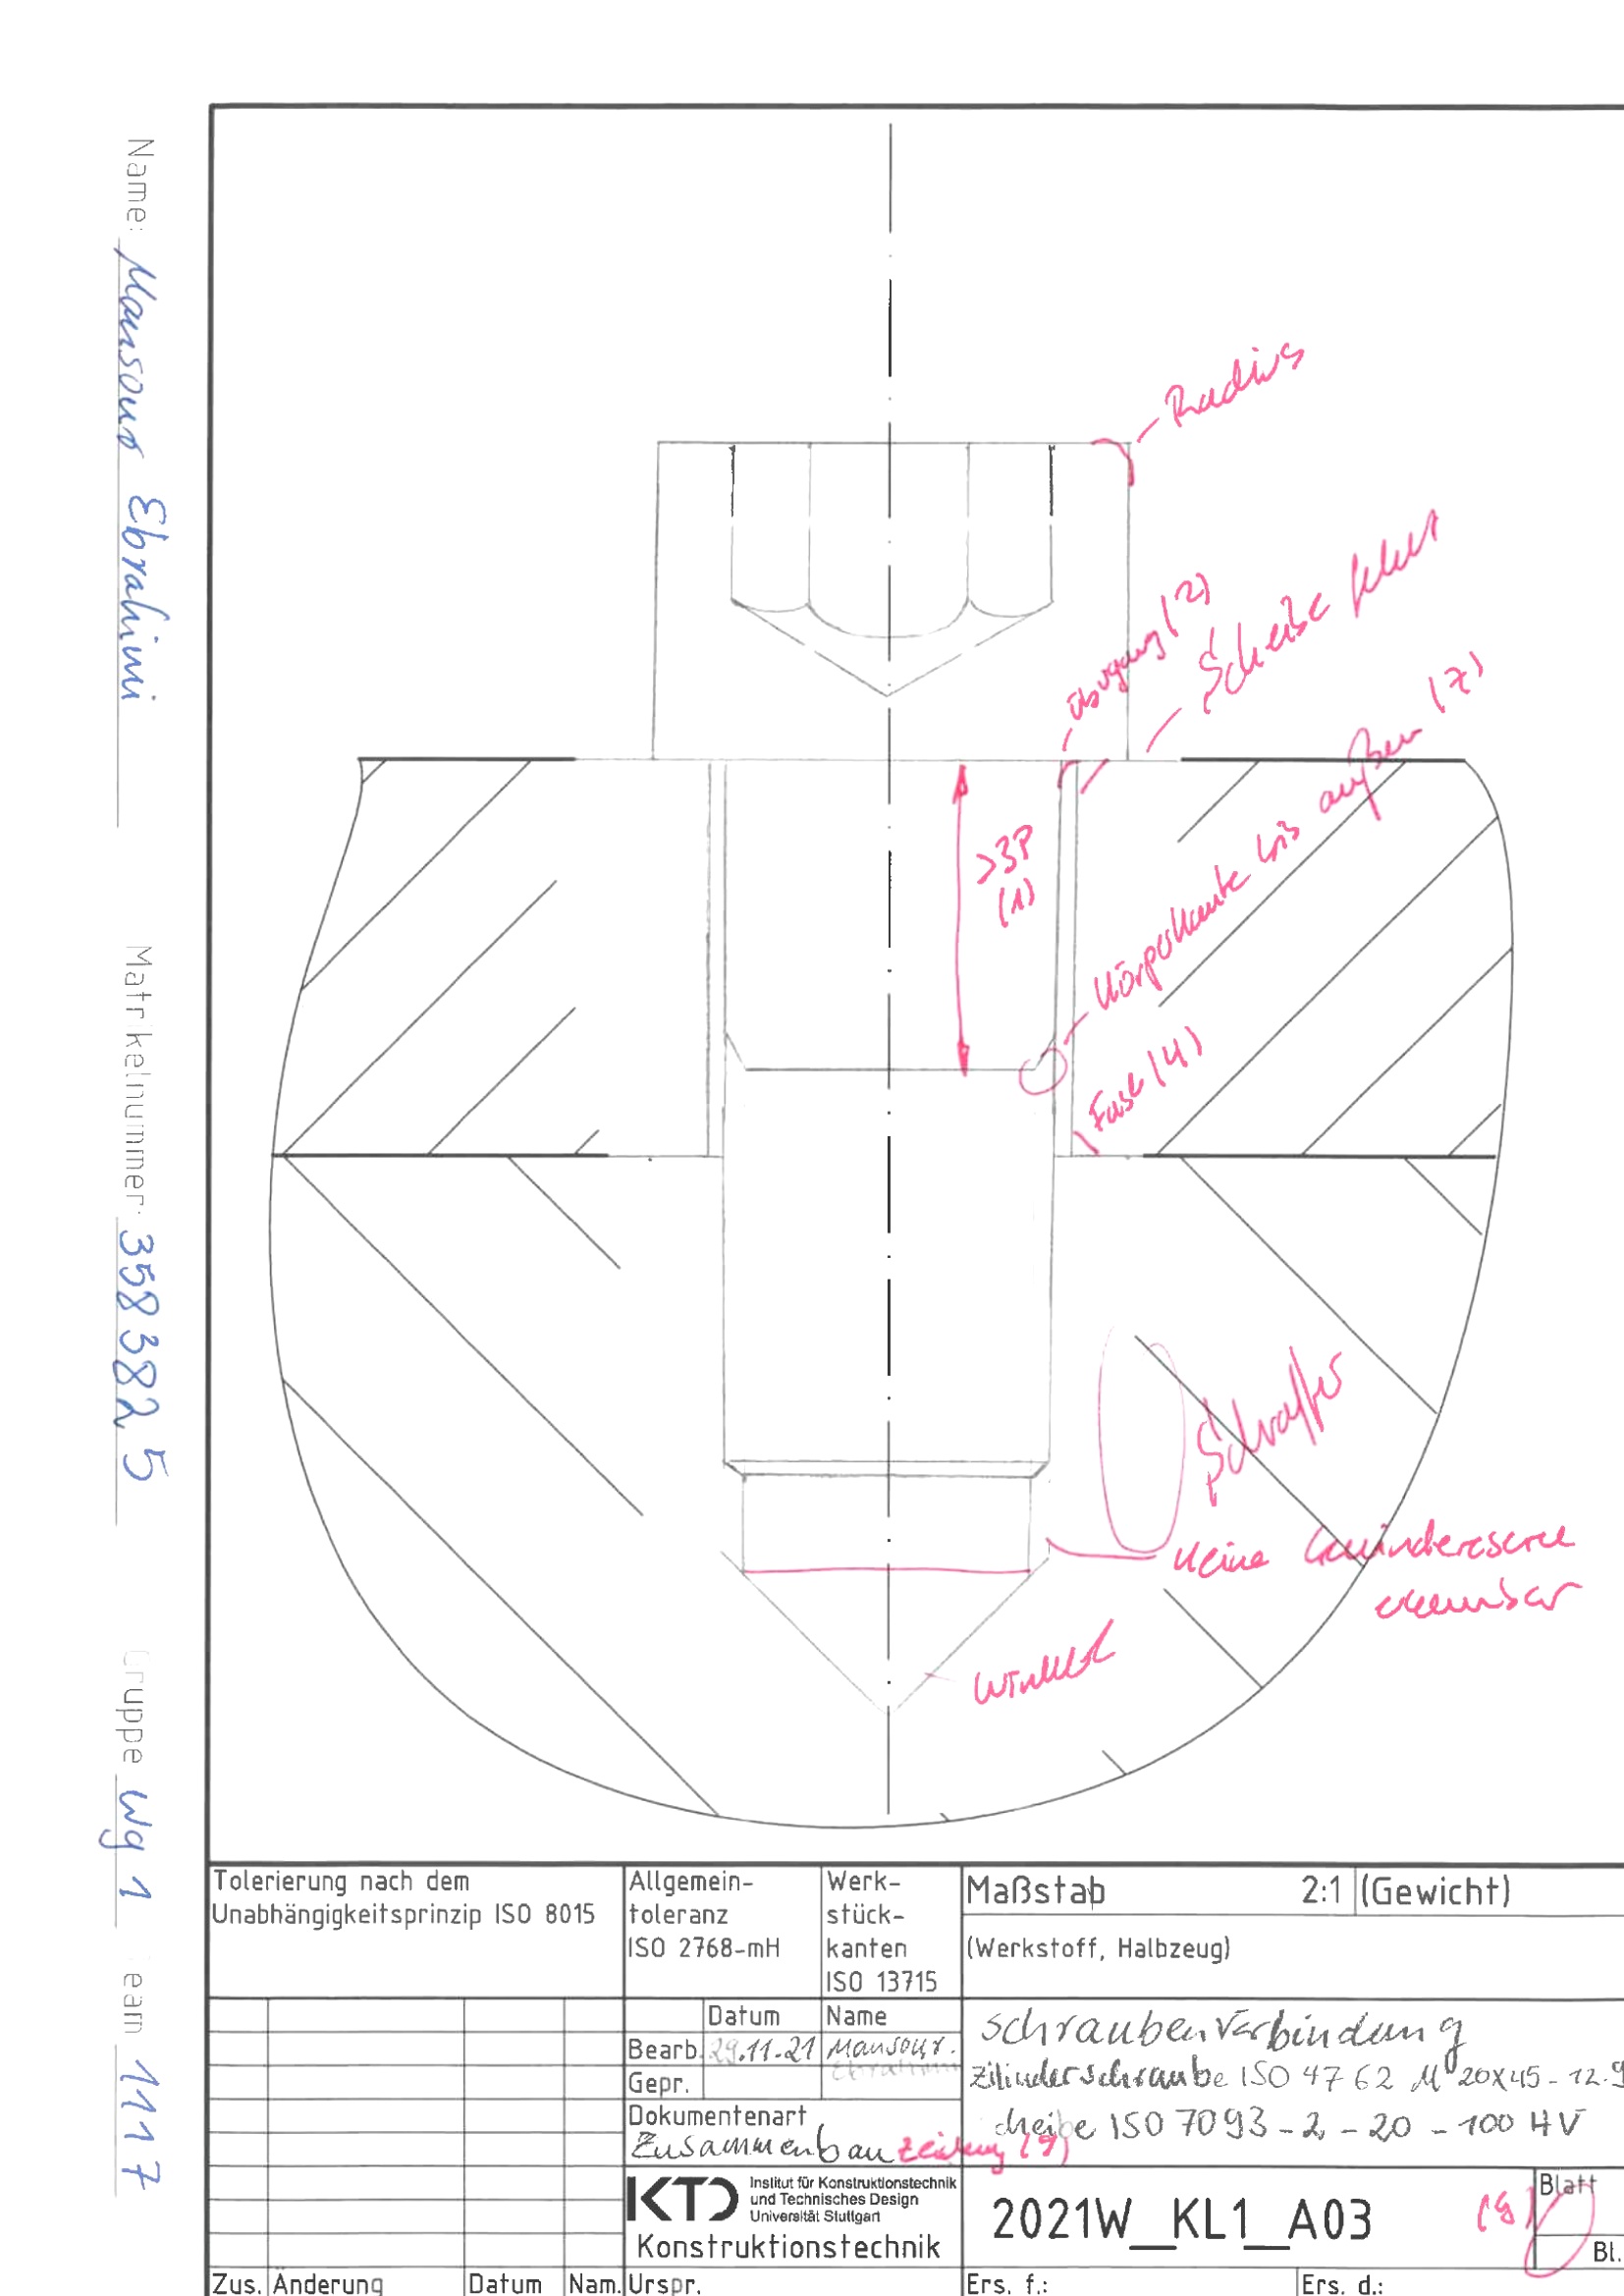 Name: Mansour Ebrahimi
Matrikelnummer: 3583825
Gruppe Wg 1
eam 1117
Radius
Übergang (2)
Scheibe fehlt
Körperkante bis außen (7)
>3P
(1)
Fase (4)
Schraffur
keine Gewindereserve
erkennbar
Winkel
Tolerierung nach dem
Unabhängigkeitsprinzip ISO 8015
Allgemein-
toleranz
ISO 2768-mH
Werk-
stück-
kanten
ISO 13715
Maßstab 2:1 (Gewicht)
(Werkstoff, Halbzeug)
Datum Name
Bearb. 29.11.21 Mansour.
Ebrahimi
Gepr.
Dokumentenart
Zusammenbau Zeichnung (9)
Schraubenverbindung
Zilinderschraube ISO 4762 M 20x45-12.9
cheibe ISO 7093-2-20-100 HV
KTD Institut für Konstruktionstechnik
und Technisches Design
Universität Stuttgart
Konstruktionstechnik
2021W_KL1_A03
(8)
Blatt
Bl.
Zus. Änderung Datum Nam. Urspr. Ers. f.: Ers. d.: